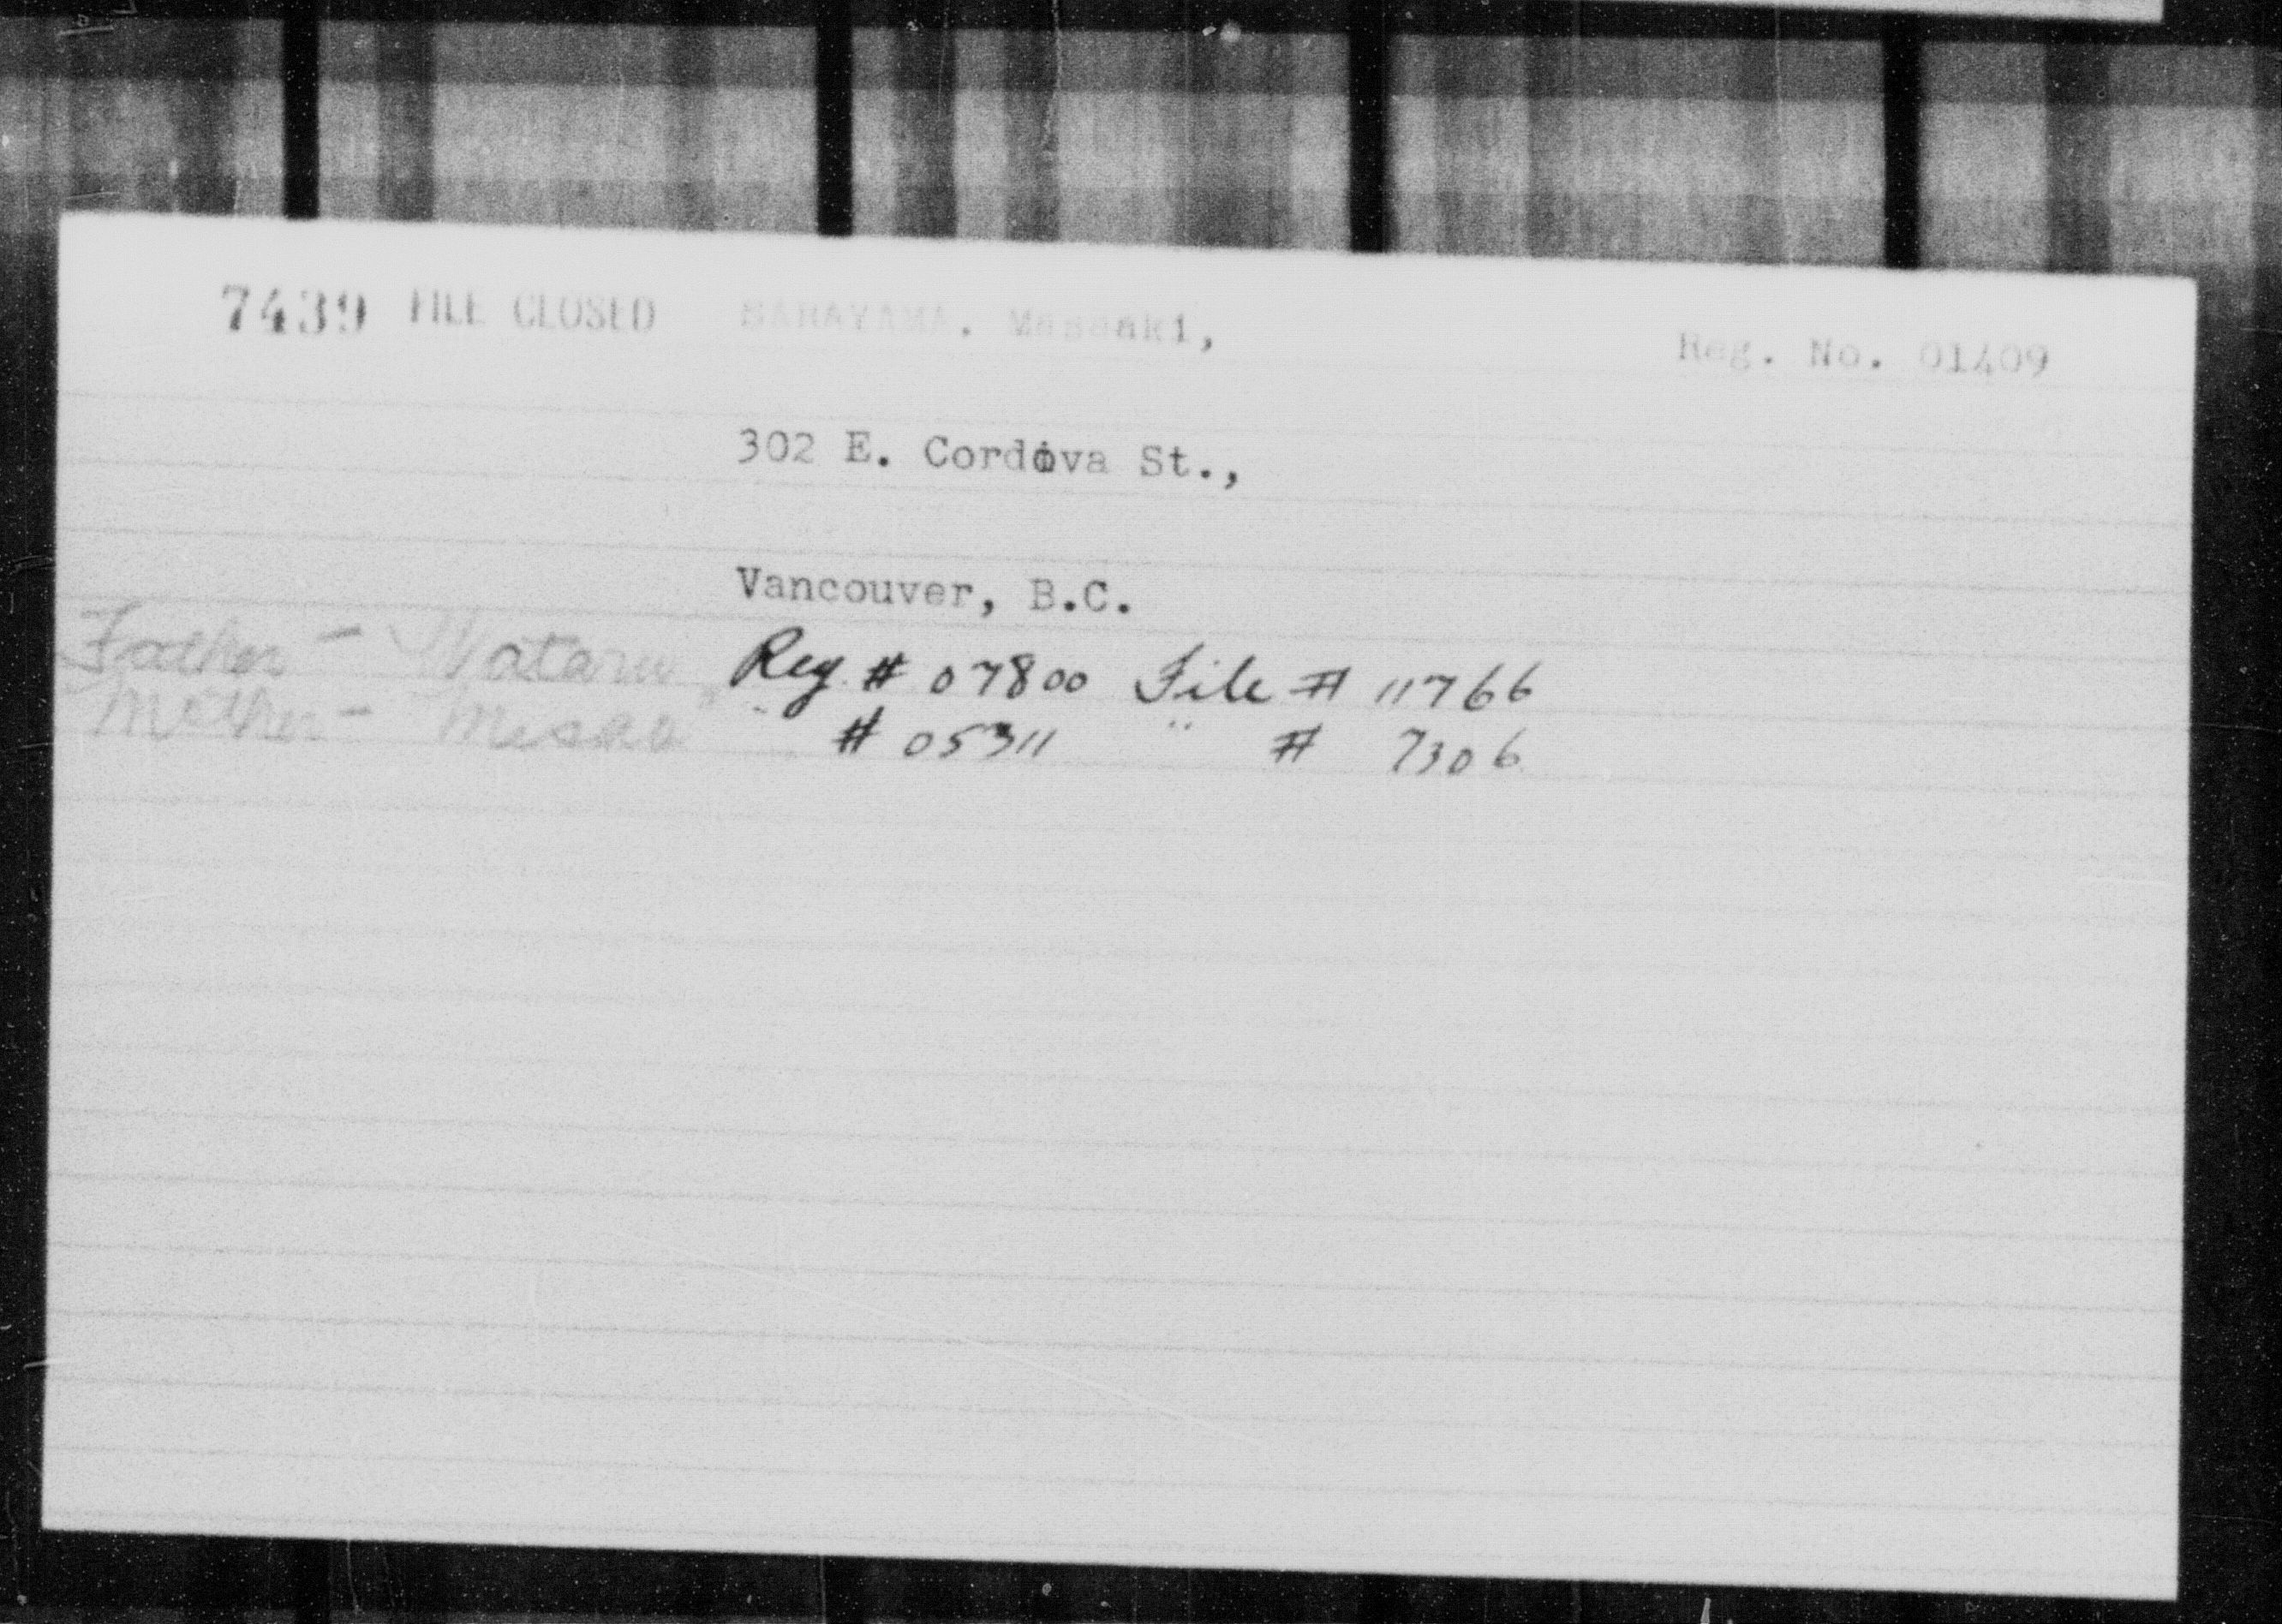 7439 FILE CLOSED SARAYAMA. Masaaki, Reg. No. 01409
302 E. Cordova St.,
Vancouver, B.C.
Father - Wataru Reg. # 07800 File # 11766
Mother - Misao " # 05311 " # 7306